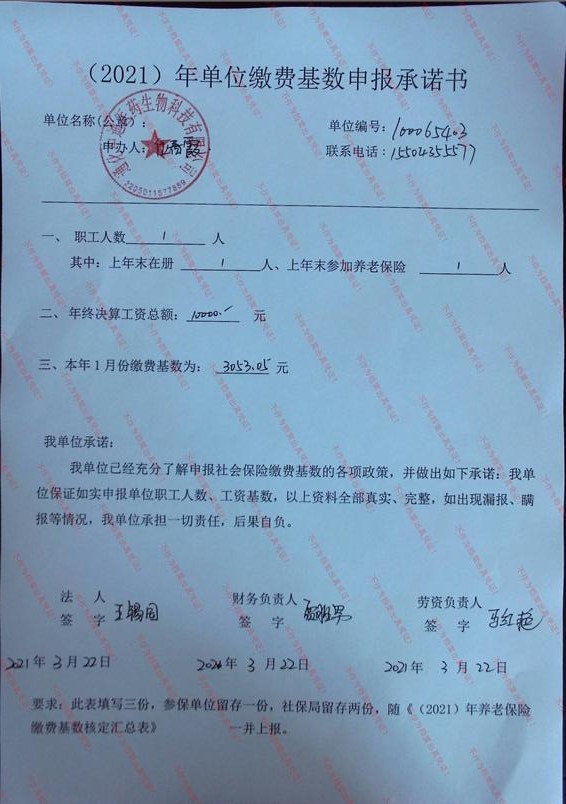 （2021）年单位缴费基数申报承诺书
单位名称(公章)：
单位编号：100065403
申办人：
联系电话：15504355577
2205011577889
一、 职工人数 1 人
其中：上年末在册 1 人、上年末参加养老保险 1 人
二、年终决算工资总额：10000.- 元
三、本年1月份缴费基数为：3053.05 元
我单位承诺：
我单位已经充分了解申报社会保险缴费基数的各项政策，并做出如下承诺：我单
位保证如实申报单位职工人数、工资基数，以上资料全部真实、完整，如出现漏报、瞒
报等情况，我单位承担一切责任，后果自负。
法 人
签 字 王锡国
财务负责人
签 字
劳资负责人
签 字 马红艳
2021年 3 月 22 日
2021年 3 月 22 日
2021年 3 月 22 日
要求：此表填写三份，参保单位留存一份，社保局留存两份，随《（2021）年养老保险
缴费基数核定汇总表》 一并上报。